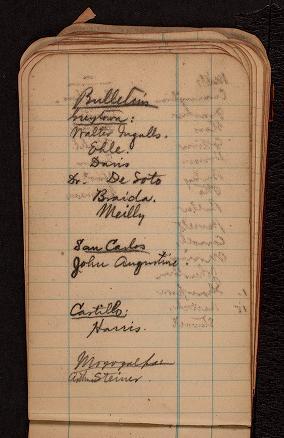 Bulletin
Greytown:
Walter Ingalls.
Ehle.
Davis
Dr. De Soto
Braida.
Meilly
San Carlos
John Augustine
Castillo:
Harris.
Matagalpa
Arthur Steiner